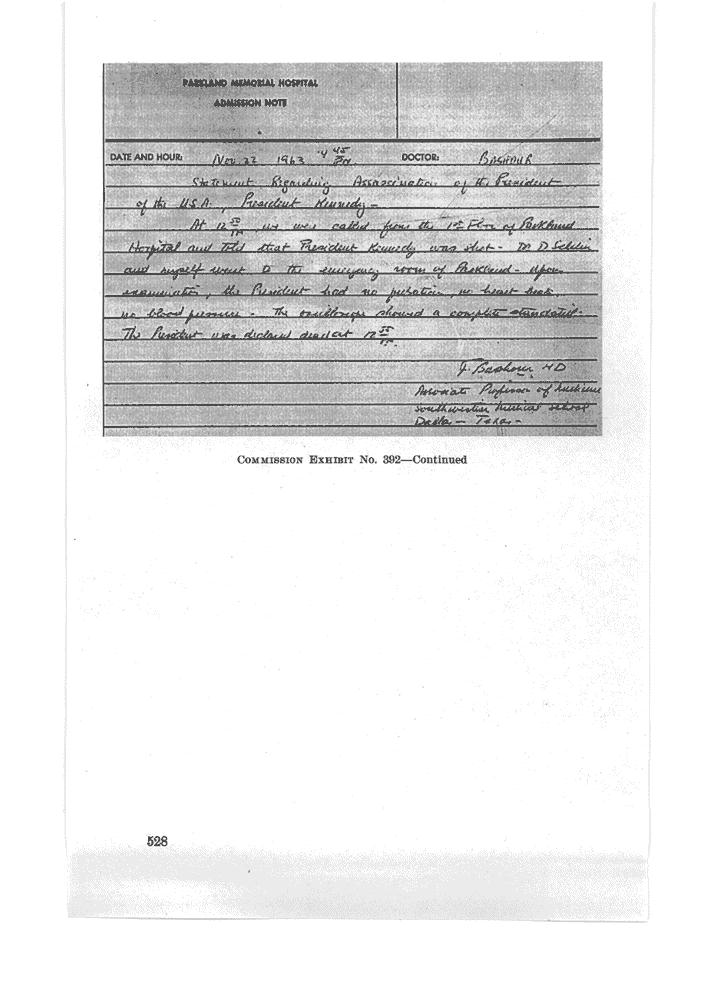 PARKLAND MEMORIAL HOSPITAL
ADMISSION NOTE
DATE AND HOUR: Nov. 22 1963 4 45 PM DOCTOR: BASHOUR
Statement Regarding Assassination of the President
of the U.S.A., President Kennedy -
At 12 50 PM, we were called from the 1st Floor of Parkland
Hospital and told that President Kennedy was shot - Dr D
and myself went to the emergency room of Parkland - Upon
examination, the President had no pulsation, no heart beat,
no blood pressure - The oscilloscope showed a complete standstill -
The President was declared dead at 12 55
J. Bashour MD
Associate Professor of Medicine
Southwestern Medical School
Dallas - Texas -
COMMISSION EXHIBIT NO. 392—Continued
528